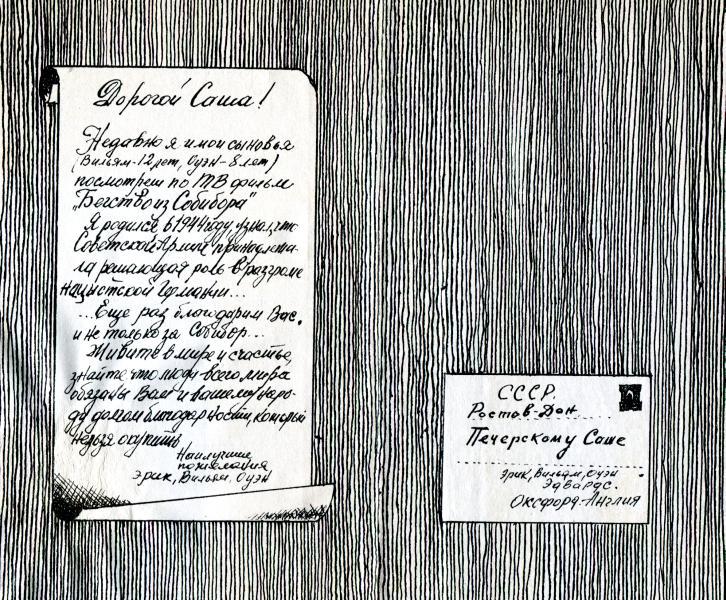 Дорогой Саша!
Недавно я и мои сыновья
(Вильям-12 лет, Оуэн-8 лет)
посмотрели по ТВ фильм
"Бегство из Собибора"
Я родился в 1944 году и знал, что
Советской Армии принадлежа-
ла решающая роль в разгроме
нацистской Германии...
...Еще раз благодарим Вас,
и не только за Собибор...
Живите в мире и счастье,
знайте что люди всего мира
обязаны Вам и вашему наро-
ду долгом благодарности, который
нельзя окупить
Наилучшие
пожелания
Эрик, Вильям, Оуэн
СССР.
Ростов-Дон
Печерскому Саше
Эрик, Вильям, Оуэн
Эдвардс.
Оксфорд-Англия